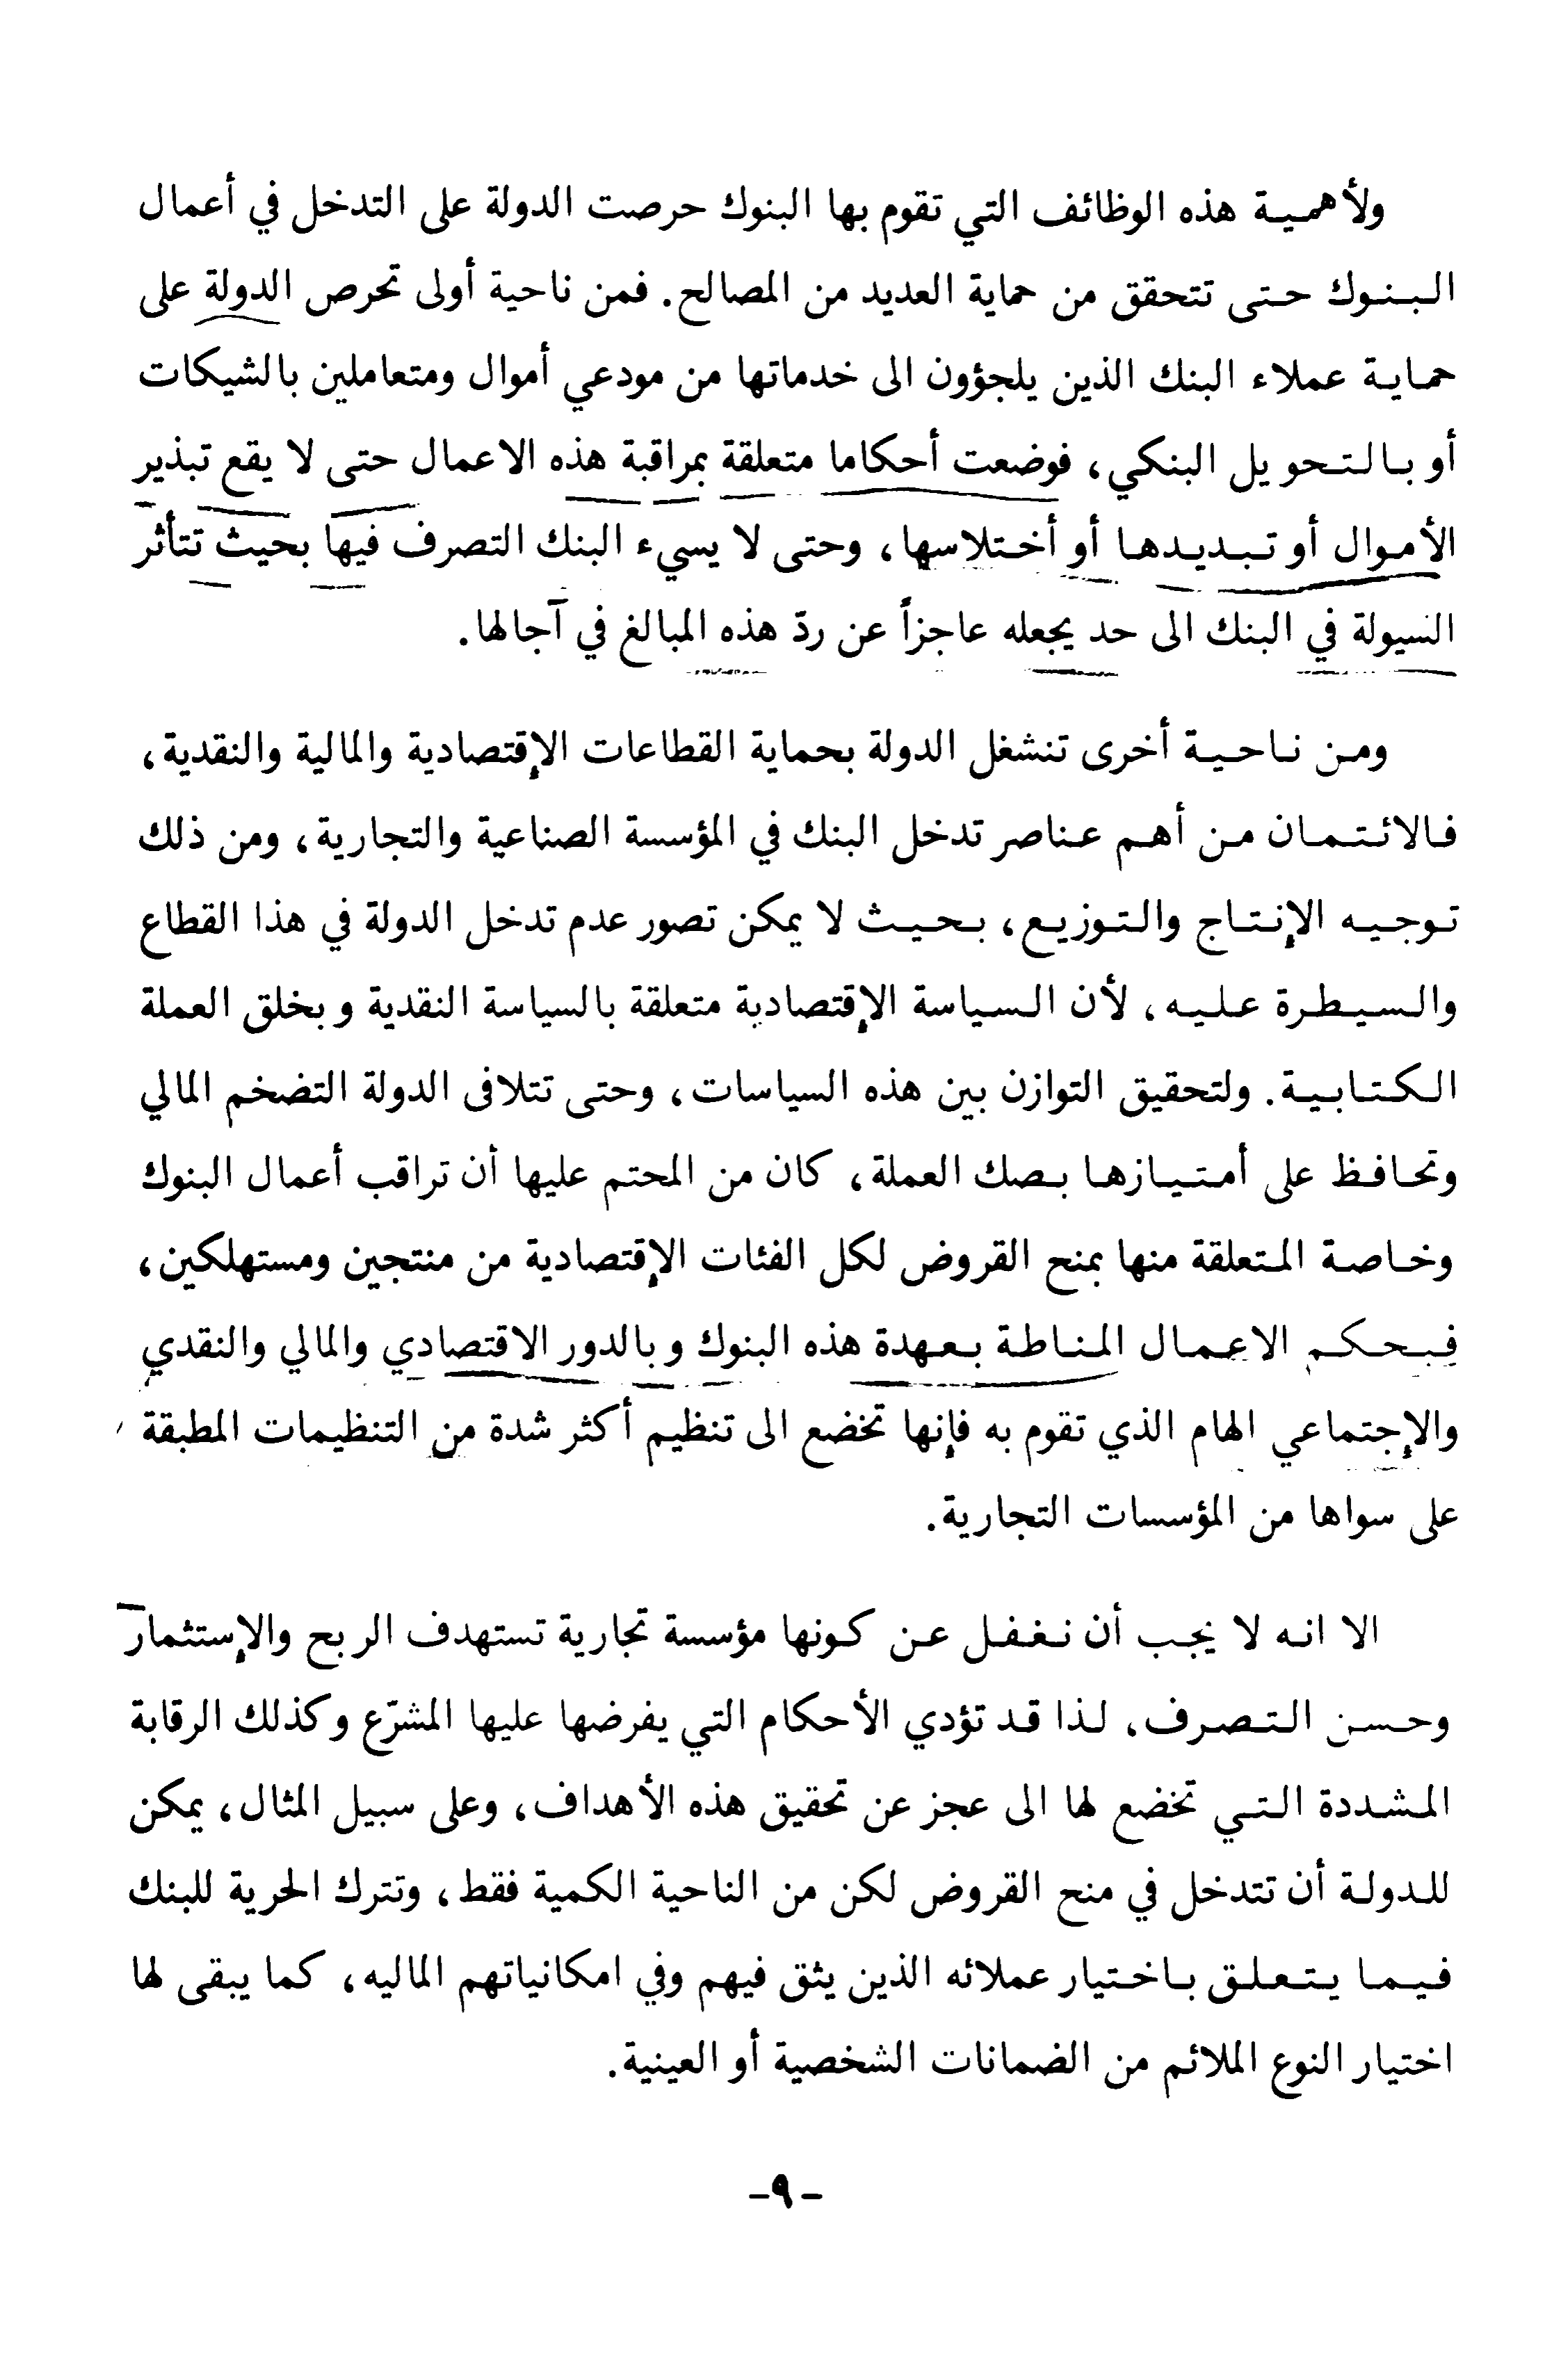 ولأهمية هذه الوظائف التي تقوم بها البنوك حرصت الدولة على التدخل في أعمال
البنوك حتى تتحقق من حماية العديد من المصالح. فمن ناحية أولى تحرص الدولة على
حماية عملاء البنك الذين يلجؤون الى خدماتها من مودعي أموال ومتعاملين بالشيكات
أو بالتحويل البنكي، فوضعت أحكاما متعلقة بمراقبة هذه الاعمال حتى لا يقع تبذير
الأموال أو تبديدها أو أختلاسها، وحتى لا يسيء البنك التصرف فيها بحيث تتأثر
السيولة في البنك الى حد يجعله عاجزاً عن ردّ هذه المبالغ في آجالها.
ومن ناحية أخرى تنشغل الدولة بحماية القطاعات الإقتصادية والمالية والنقدية،
فالائتمان من أهم عناصر تدخل البنك في المؤسسة الصناعية والتجارية، ومن ذلك
توجيه الإنتاج والتوزيع، بحيث لا يمكن تصور عدم تدخل الدولة في هذا القطاع
والسيطرة عليه، لأن السياسة الإقتصادية متعلقة بالسياسة النقدية وبخلق العملة
الكتابية. ولتحقيق التوازن بين هذه السياسات، وحتى تتلافى الدولة التضخم المالي
وتحافظ على أمتيازها بصك العملة، كان من المحتم عليها أن تراقب أعمال البنوك
وخاصة المتعلقة منها بمنح القروض لكل الفئات الإقتصادية من منتجين ومستهلكين،
فبحكم الاعمال المناطة بعهدة هذه البنوك وبالدور الاقتصادي والمالي والنقدي
والإجتماعي الهام الذي تقوم به فإنها تخضع الى تنظيم أكثر شدة من التنظيمات المطبقة
على سواها من المؤسسات التجارية.
الا انه لا يجب أن نغفل عن كونها مؤسسة تجارية تستهدف الربح والإستثمار
وحسن التصرف، لذا قد تؤدي الأحكام التي يفرضها عليها المشرّع وكذلك الرقابة
المشددة التي تخضع لها الى عجز عن تحقيق هذه الأهداف، وعلى سبيل المثال، يمكن
للدولة أن تتدخل في منح القروض لكن من الناحية الكمية فقط، وتترك الحرية للبنك
فيما يتعلق باختيار عملائه الذين يثق فيهم وفي امكانياتهم الماليه، كما يبقى لها
اختيار النوع الملائم من الضمانات الشخصية أو العينية.
-٩-